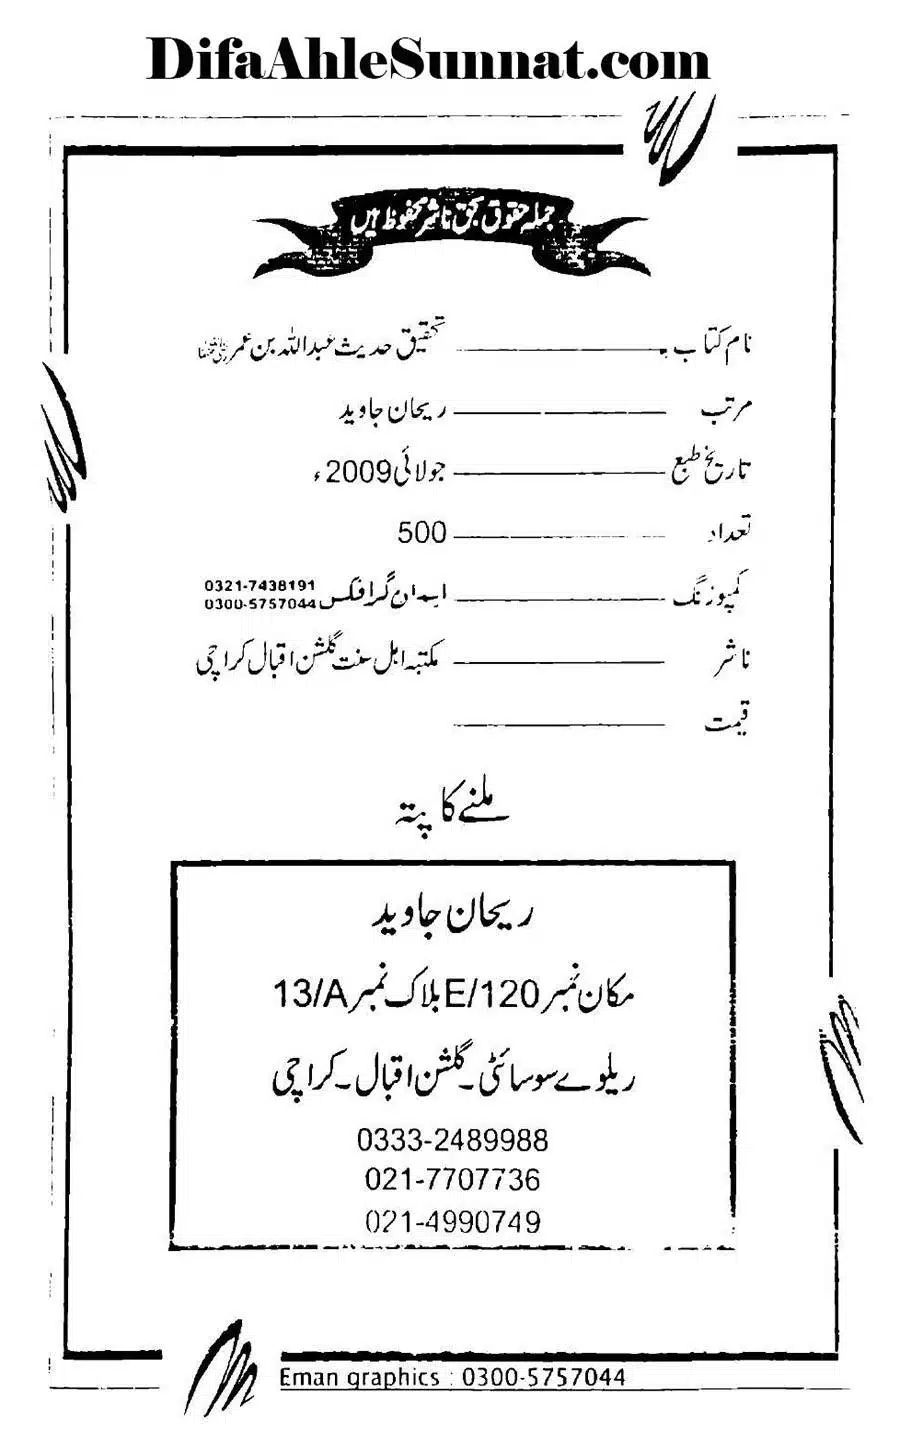 DifaAhleSunnat.com
جملہ حقوق بحق ناشر محفوظ ہیں
نام کتاب تحقیق حدیث عبداللہ بن عمر
مرتب ریحان جاوید
تاریخ طبع جولائی 2009ء
تعداد 500
کمپوزنگ ایمان گرافکس 0321-7438191
0300-5757044
ناشر مکتبہ اہل سنت گلشن اقبال کراچی
قیمت
ملنے کا پتہ
ریحان جاوید
مکان نمبر E/120 بلاک نمبر 13/A
ریلوے سوسائٹی۔ گلشن اقبال۔ کراچی
0333-2489988
021-7707736
021-4990749
Eman graphics : 0300-5757044